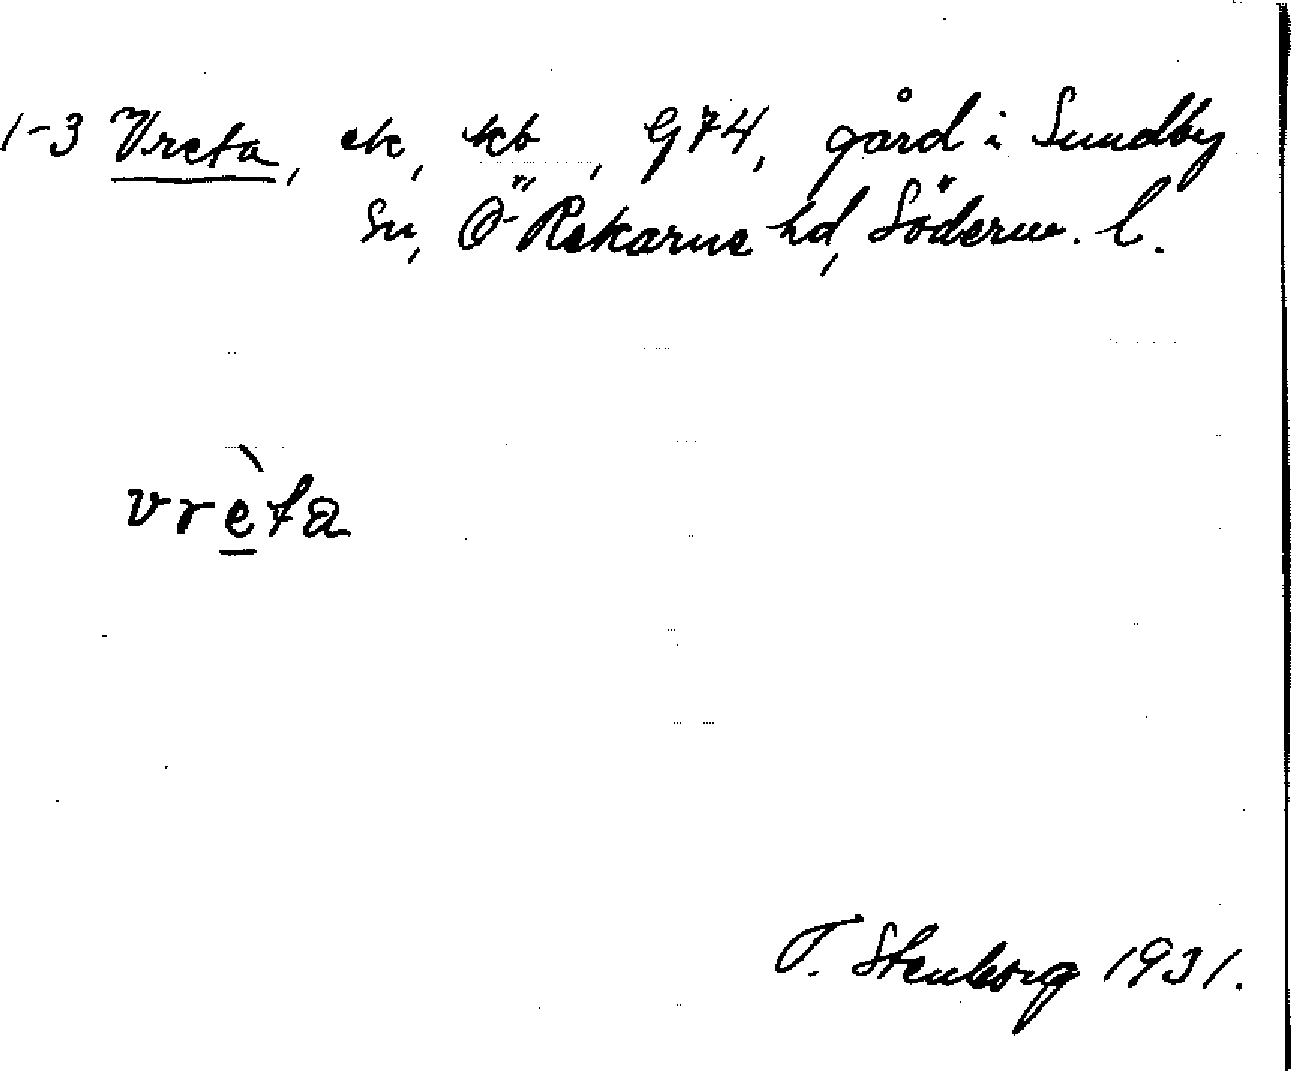 1-3 Vreta, ek, kb, G74, gård i Sundby
sn, Ö-Rekarne hd, Söderm. l.
vrèta
T. Stenborg 1931.